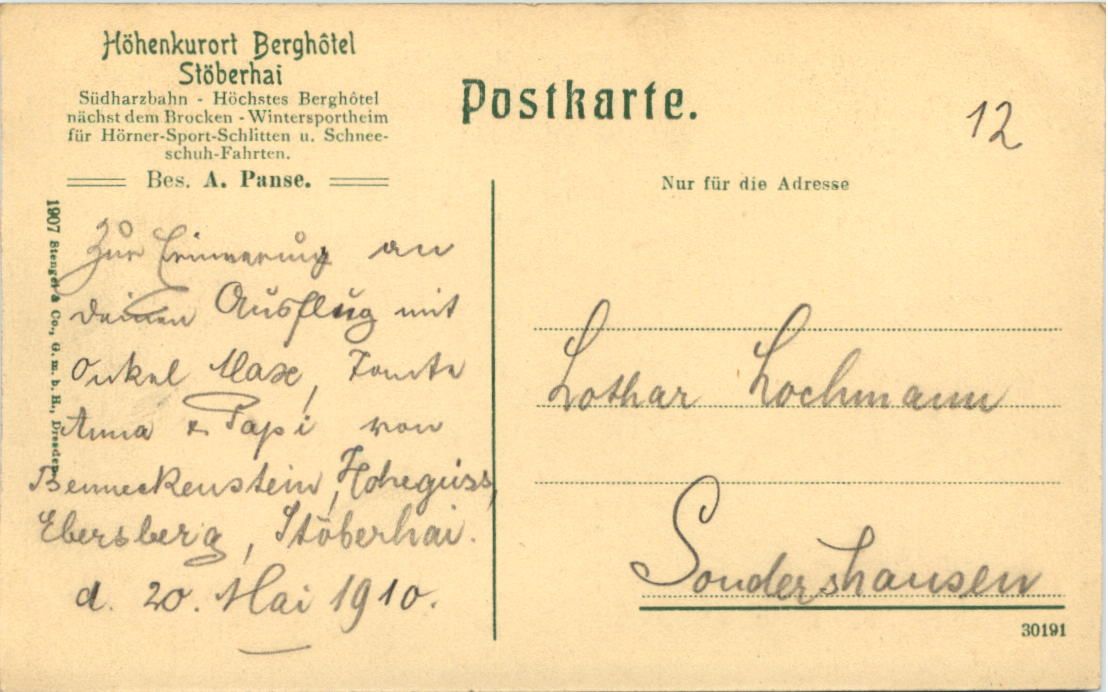 Höhenkurort Berghôtel
Stöberhai
Südharzbahn - Höchstes Berghôtel
nächst dem Brocken - Wintersportheim
für Hörner-Sport-Schlitten u. Schnee-
schuh-Fahrten.
Bes. A. Panse.
Postkarte.
12
Nur für die Adresse
1907 Stengel & Co., G. m. b. H., Dresden
Zur Erinnerung an
deinen Ausflug mit
Onkel Max, Tante
Anna & Papi von
Benneckenstein, Hoheguiss,
Ebersberg, Stöberhai.
d. 20. Mai 1910.
Lothar Lochmann
Sondershausen
30191